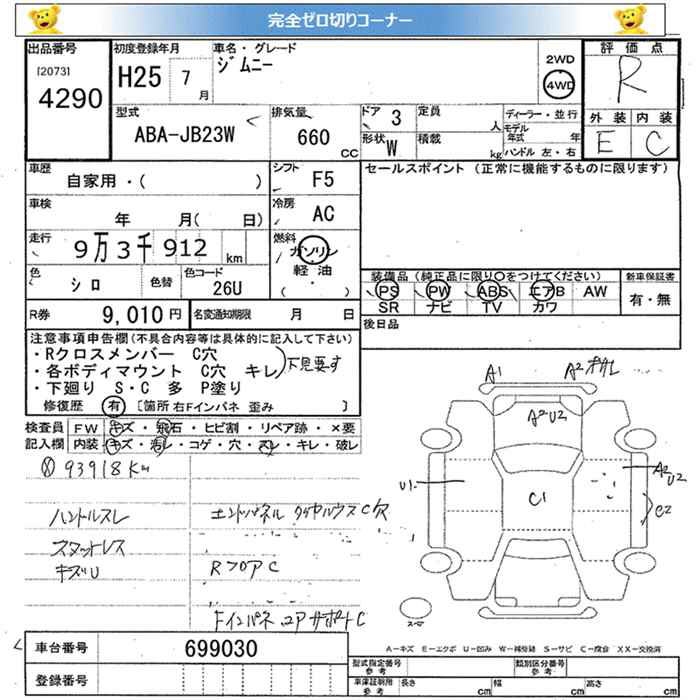 完全ゼロ切りコーナー
出品番号
[2073]
4290
初度登録年月
H25 7月
車名・グレード
ジムニー
2WD
4WD
評価点
R
型式
ABA-JB23W
排気量
660
CC
ドア
3
形状
W
定員
人
積載
kg
ディーラー・並行
モデル年式 年
ハンドル 左・右
外装 内装
E C
車歴
自家用・( )
シフト
F5
セールスポイント (正常に機能するものに限ります)
車検
年 月( 日)
冷房
AC
走行
9万3千912 km
燃料
ガソリン
軽油
( ・ )
色
シロ
色替
色コード
26U
装備品 (純正品に限り○をつけてください)
PS PW ABS エアB AW
SR ナビ TV カワ
新車保証書
有・無
R券
9,010円
名変通知期限 月 日
後日品
注意事項申告欄(不具合内容等は具体的に記入して下さい)
・Rクロスメンバー C穴
・各ボディマウント C穴 キレ
・下廻り S・C 多 P塗り
下見要す
修復歴 有 [箇所 右Fインパネ 歪み ]
検査員
記入欄
FW キズ・飛石・ヒビ割・リペア跡・×要
内装 キズ・汚レ・コゲ・穴・スレ・キレ・破レ
93918Km
ハンドルスレ
スタットレス
キズU
エンドパネル タイヤハウスC穴
RフロアC
Fインパネ コアサポートC
A1
A2
A2U2
U1
C1
A2
U2
C2
A-キズ E-エクボ U-凹み W-補修跡 S-サビ C-腐食 XX-交換済
車台番号
699030
登録番号
型式指定番号
参考
類別区分番号
参考
車庫証明用
参考
長さ cm 幅 cm 高さ cm